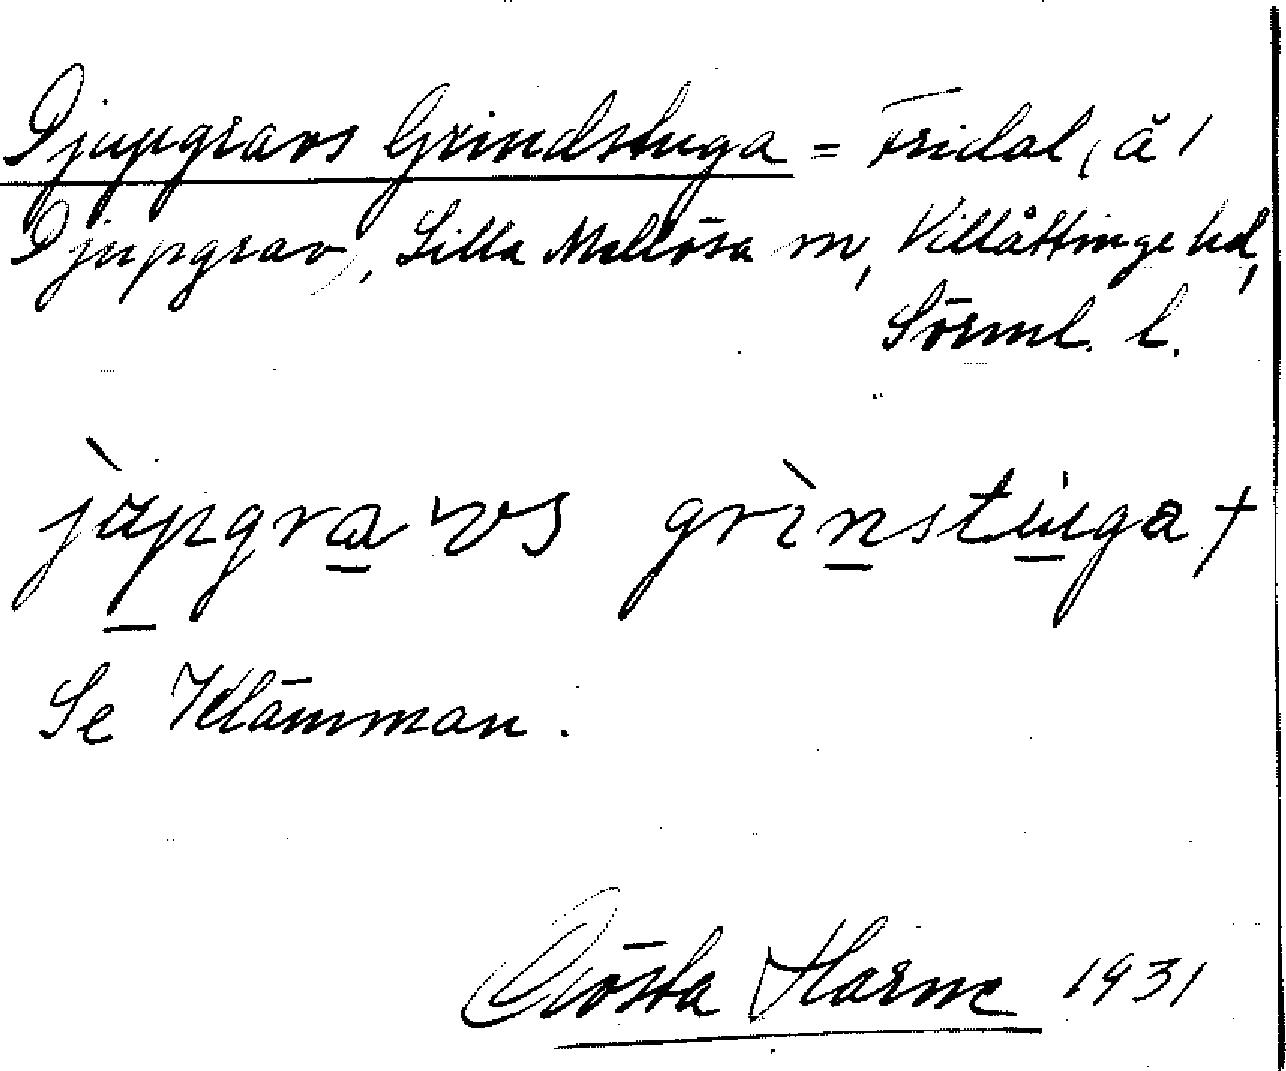 Djupgravs Grindstuga = Fridal, (å
Djupgrav), Lilla Mellösa sn, Villåttinge hd,
Sörml. l.
jùpgravs grìnstuga +
Se Klämman.
Gösta Harne 1931